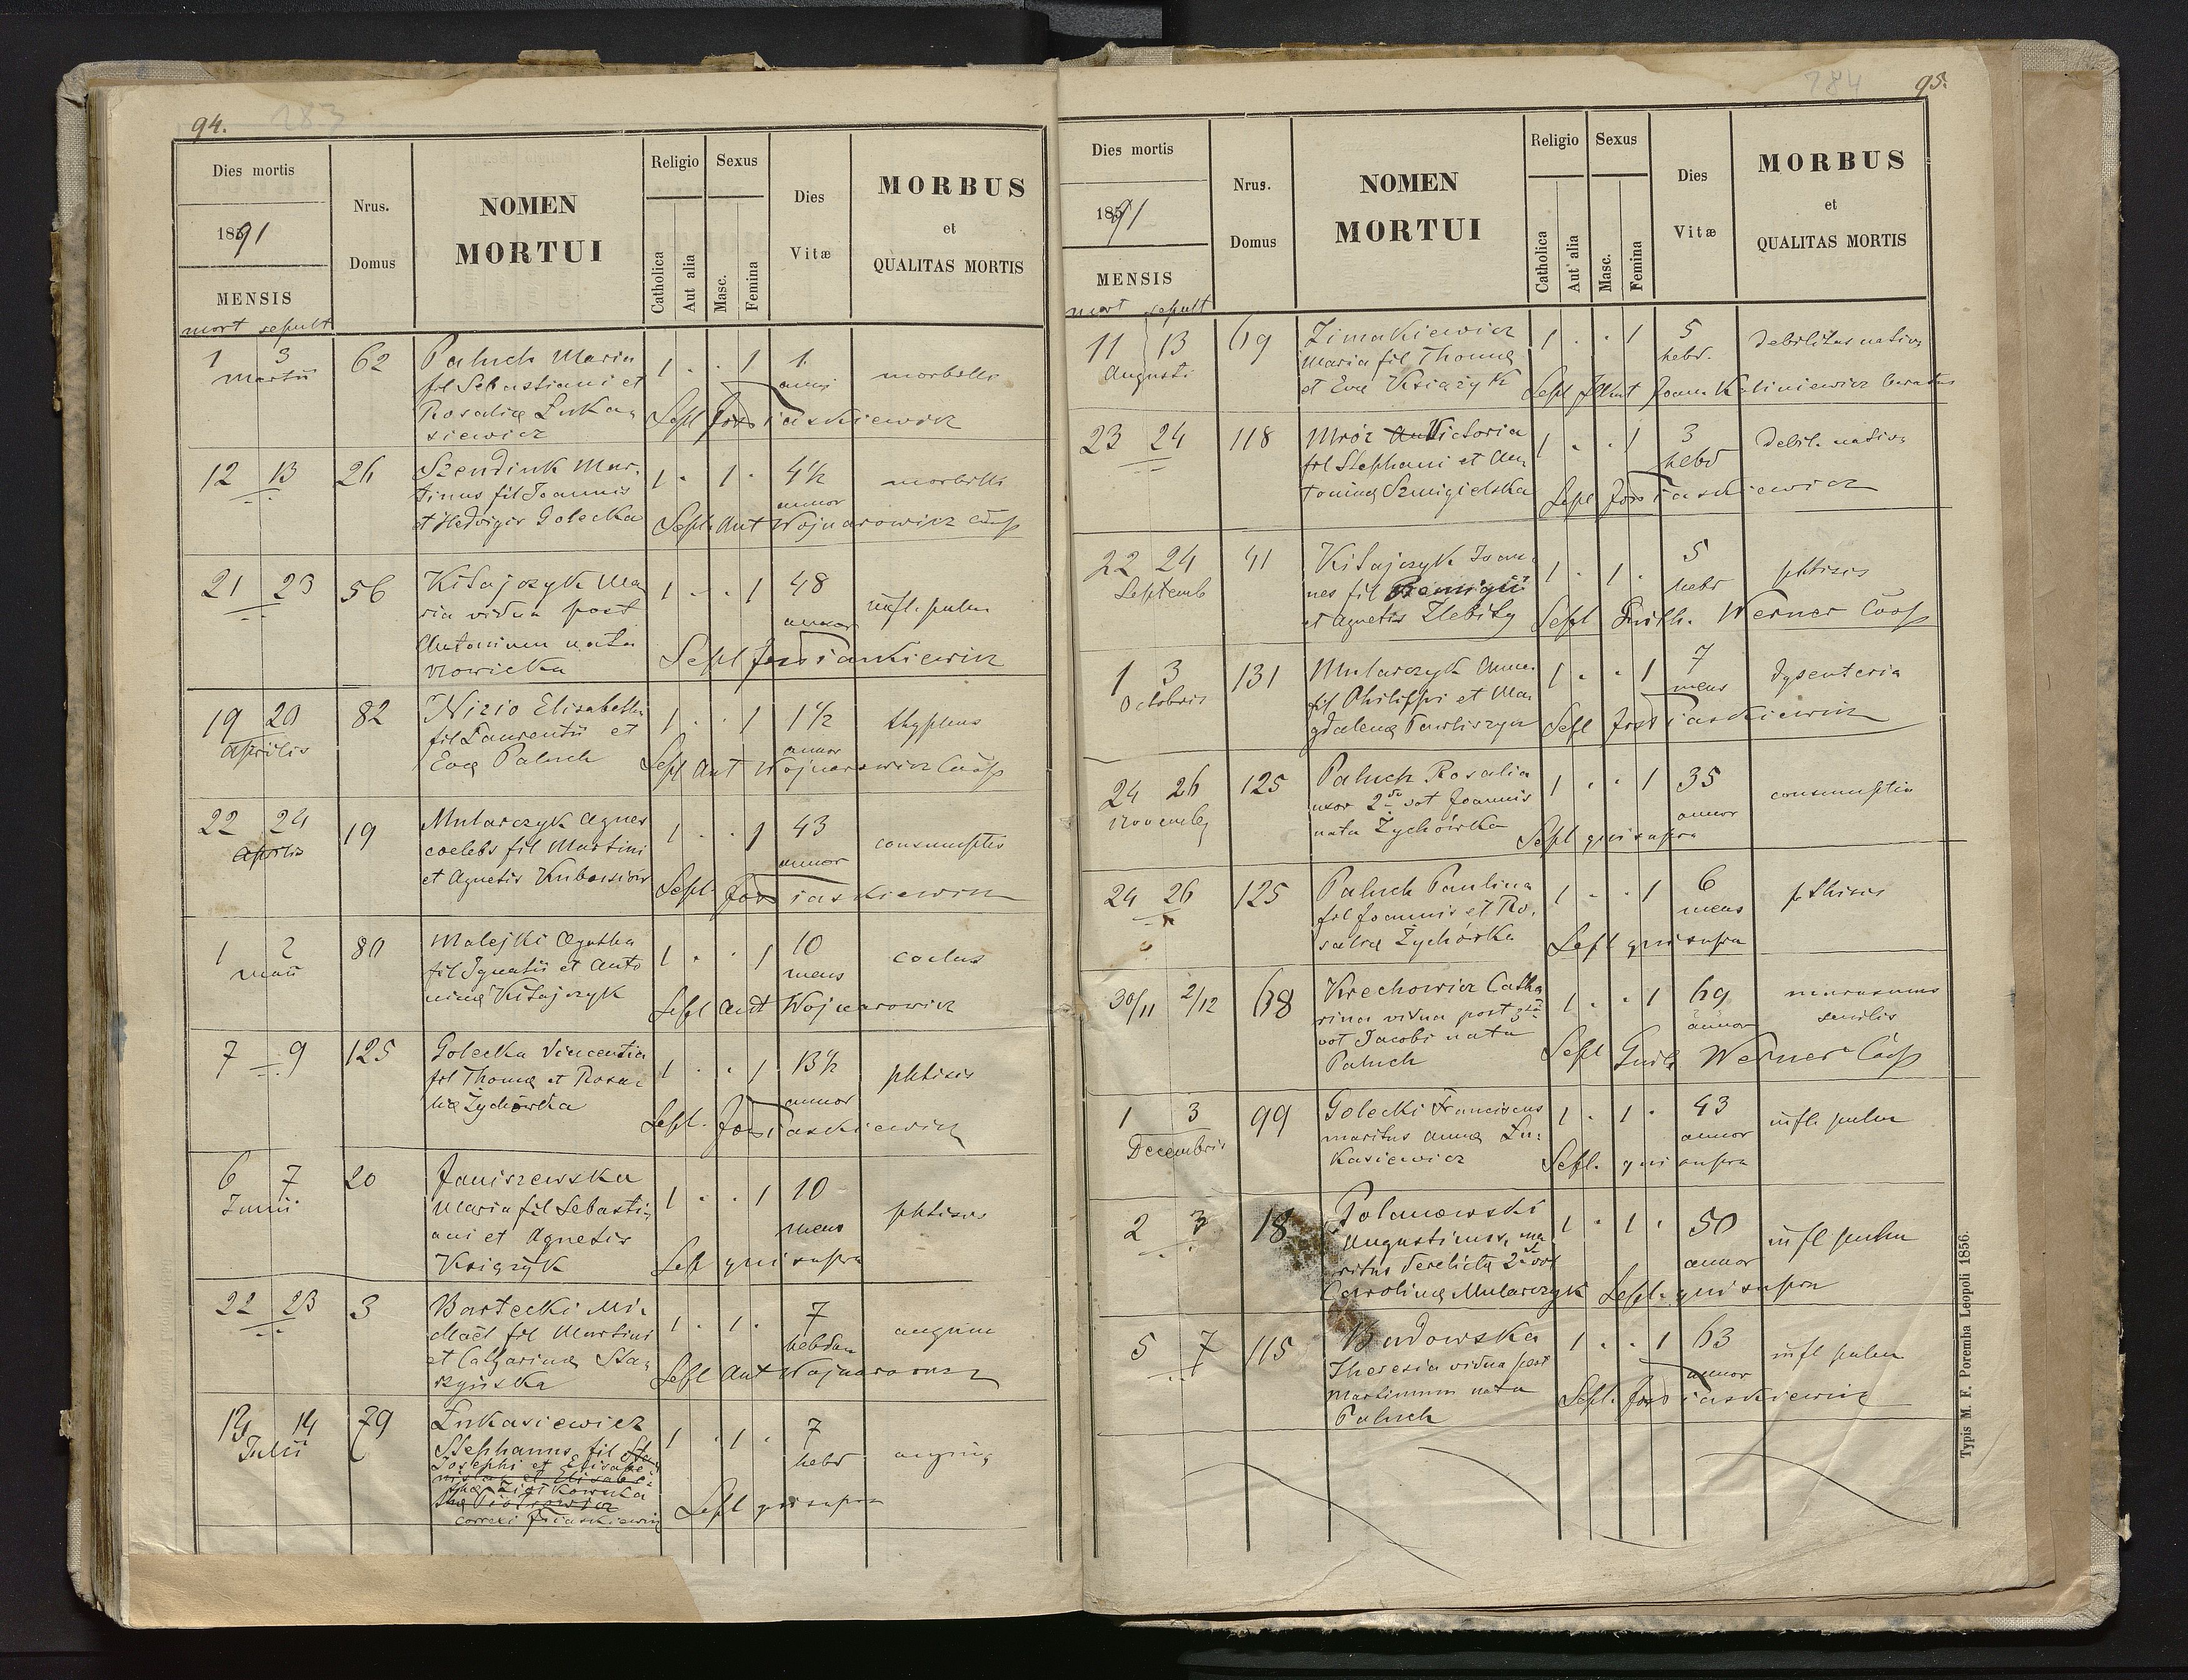 94.
Dies mortis
1891
MENSIS
mort sepult
Nrus.
Domus
NOMEN
MORTUI
Religio
Catholica
Aut alia
Sexus
Masc.
Femina
Dies
Vitæ
MORBUS
et
QUALITAS MORTIS
1 3 62 Paluch Maria 1 . . 1 1
Martii fil Sebastiani et anni morbilli
Rosaliæ Łuka-
siewicz
Sepl Jos Jaskiewicz
12 13 26 Szendiuk Mar- 1 . 1 . 4½
-"- tinus fil Joannis annor morbilli
et Hedvigis Golecka Sepl. Ant Wojnarowicz Coop
21 23 56 Kitajczyk Ma 1 . . 1 48
-"- ria vidua post annor infl. pulm
Antonium nata
Nowicka Sepl Jos Jaskiewicz
19 20 82 Nizio Elisabetha 1 . . 1 1½ thyphus
Aprilis fil Laurentii et annor
Evæ Paluch Sepl Ant Wojnarowicz Coop
22 24 19 Mularczyk Agnes 1 . . 1 43
Aprilis coelebs fil Martini annor consumptio
et Agnetis Sepl. Jos Jaskiewicz
1 2 80 Malejki Agatha 1 . . 1 10
Maii fil Ignatii et Anto mens
ninæ Kitajczyk Sepl Ant Wojnarowicz
7 9 125 Golecka Vincentia 1 . . 1 13½
-"- fil Thomæ et Rosa- annor phtisis
liæ Żychówka Sepl. Jos Jaskiewicz
6 7 20 Janiszewska 1 . . 1 10
Junii Maria fil Sebasti- mens phtisis
ani et Agnetis
Książyk Sep qui supra
22 23 3 Bartecki Mi- 1 . 1 . 7
-"- chaël fil Martini hebdom angina
et Catharinæ Sta-
szyńska Sepl Ant Wojnarowicz
13 14 79 Łukasiewicz 1 . 1 . 7
Julii Stephanus fil Sta- hebd angina
Josephi et Elisabe-
nislai et Elisabe-
thæ Ziółkowska
thæ Piotrowicz
correxi Jaskiewicz Sepl qui supra
95.
Dies mortis
1891
MENSIS
mort sepult
Nrus.
Domus
NOMEN
MORTUI
Religio
Catholica
Aut' alia
Sexus
Masc.
Femina
Dies
Vitæ
MORBUS
et
QUALITAS MORTIS
11 13 69 Zimakiewicz 1 . . 1 5 Debilitas nativa
Augusti Maria fil Thomæ hebd.
et Evæ Książyk Sepl Joan Kaliniewicz Curatus
23 24 118 Mróz Victoria 1 . . 1 3 Debil. nativa
-"- fil Stephani et An- hebd
toninæ Szmigielska Sepl Jos Jaskiewicz
22 24 41 Kitajczyk Joan- 1 . 1 . 5 phtisis
Septemb nes fil Remigii hebd
et Agnetis Zlebity Sepl Guilh. Werner Coop
1 3 131 Mularczyk Anna 1 . . 1 7 Dysenteria
Octobris fil Philippi et Ma mens
gdalenæ Pawliszyn Sepl Jos Jaskiewicz
24 26 125 Paluch Rosalia 1 . . 1 35 consumptio
Novemb uxor 2di vot Joannis annor
nata Żychówka Sepl qui supra
24 26 125 Paluch Paulina 1 . . 1 6 pthisis
-"- fil Joannis et Ro- mens
saliæ Żychówka Sepl qui supra
30/11 2/12 68 Krechowicz Catha 1 . . 1 69 marasmus
rina vidua post annor senilis
vot Jacobi nata
Paluch Sepl Guilh Werner Coop
1 3 99 Golecki Franciscus 1 . 1 . 43 infl. pulm
Decembris maritus Annæ Łu- annor
kasiewicz Sepl. qui supra
2 3 18 Polanowski 1 . 1 . 50 infl pulm
-"- Augustinus, ma annor
ritus derelicta 2di vot
Carolinæ Mularczyk Sepl. qui supra
5 7 115 Budowska 1 . . 1 63 infl pulm
-"- Theresia vidua post annor
Martinum nata
Paluch Sepl. Jos Jaskiewicz
Typis M. F. Poremba Leopoli 1856.